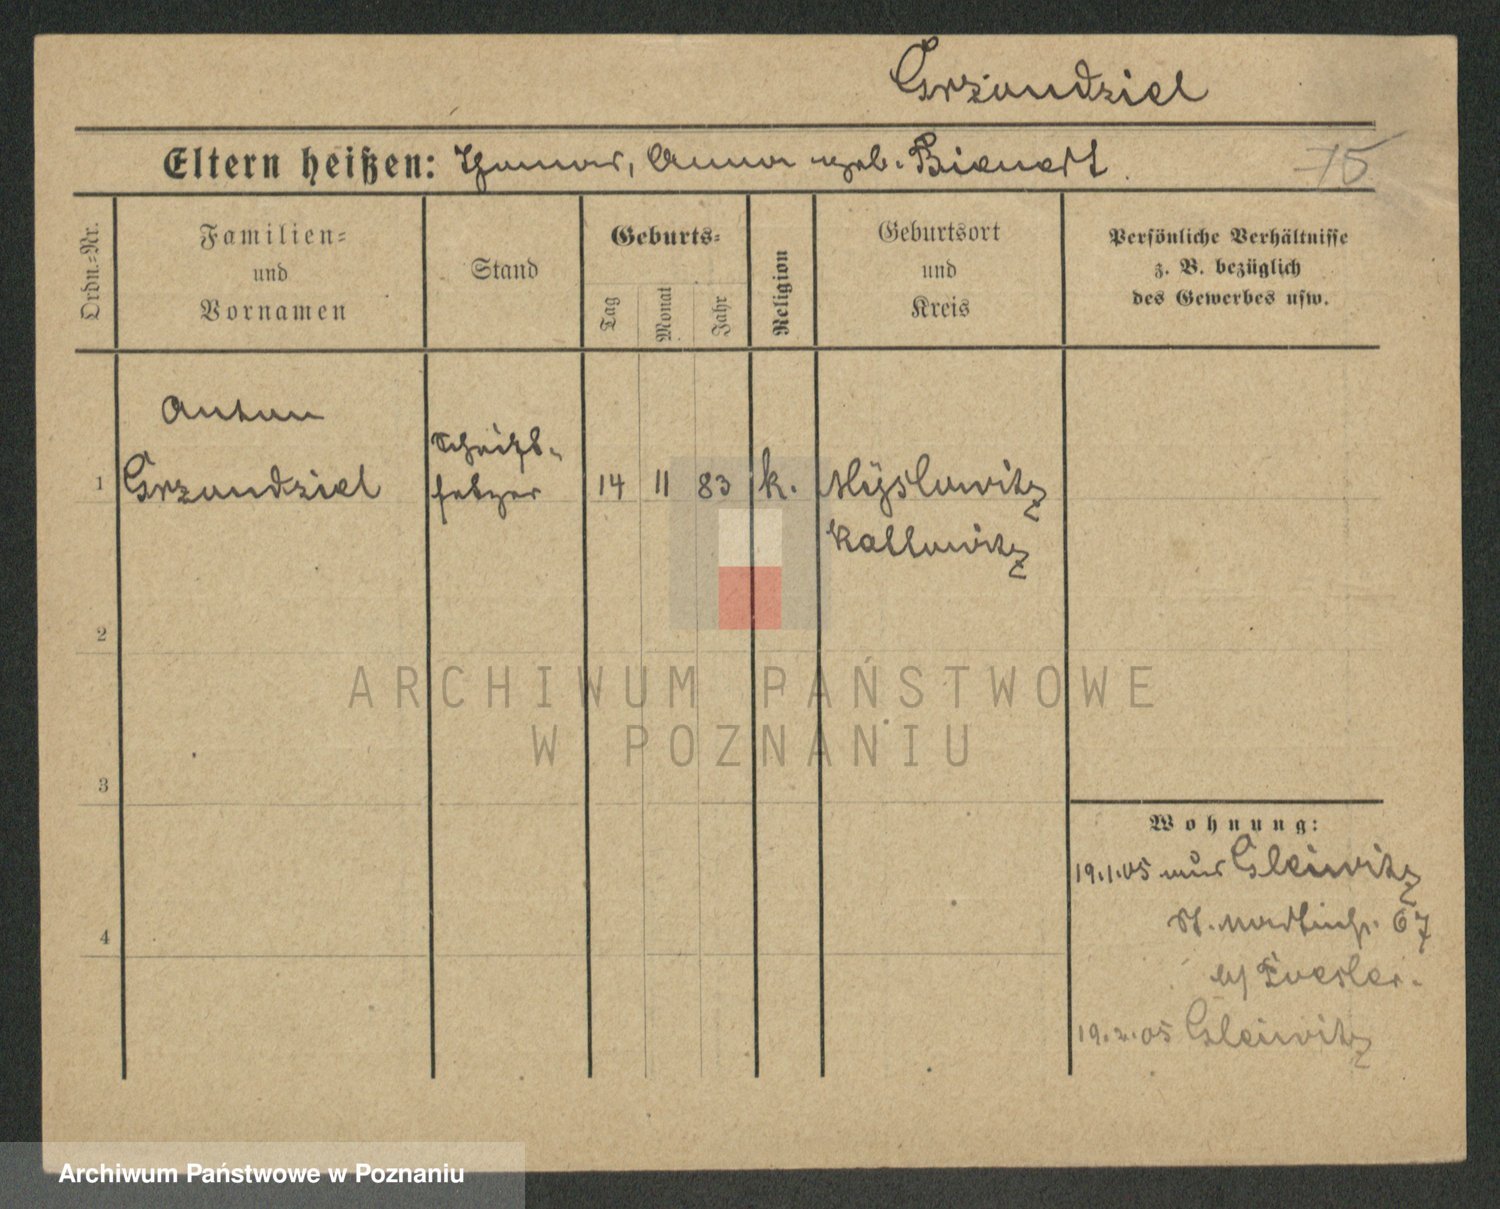 Grzondziel
Eltern heißen: Thomas, Anna geb. Bienert.
75
Ordn.-Nr.
Familien-
und
Vornamen
Stand
Geburts-
Tag
Monat
Jahr
Religion
Geburtsort
und
Kreis
Persönliche Verhältnisse
z. B. bezüglich
des Gewerbes usw.
Anton
1 Grzondziel
Schrift-
setzer
14 11 83 k. Myslowitz
Kattowitz
2
3
4
Wohnung:
19.1.05 aus Gleiwitz
St. Martinstr. 67
b/
19.2.05 Gleiwitz
ARCHIWUM PAŃSTWOWE
W POZNANIU
Archiwum Państwowe w Poznaniu